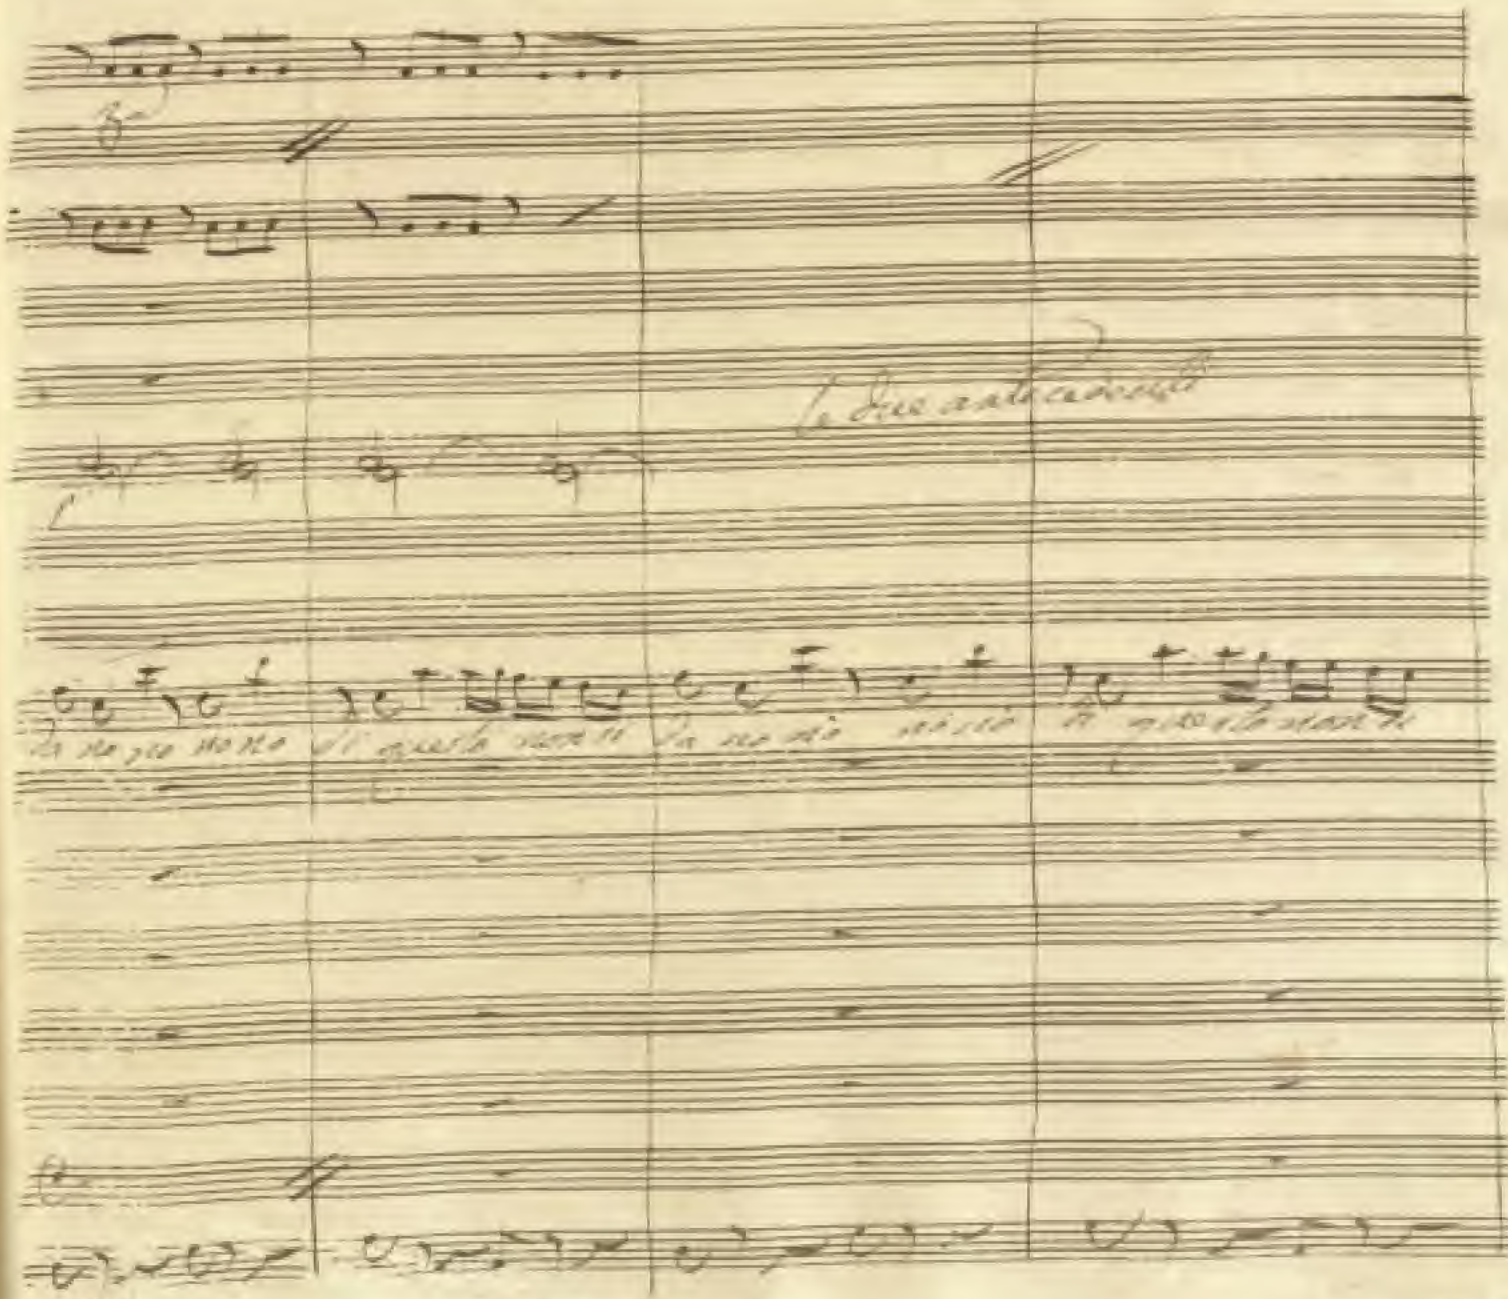 le due antecedenti
la no no no no di questa non si la no no no no di questa non si